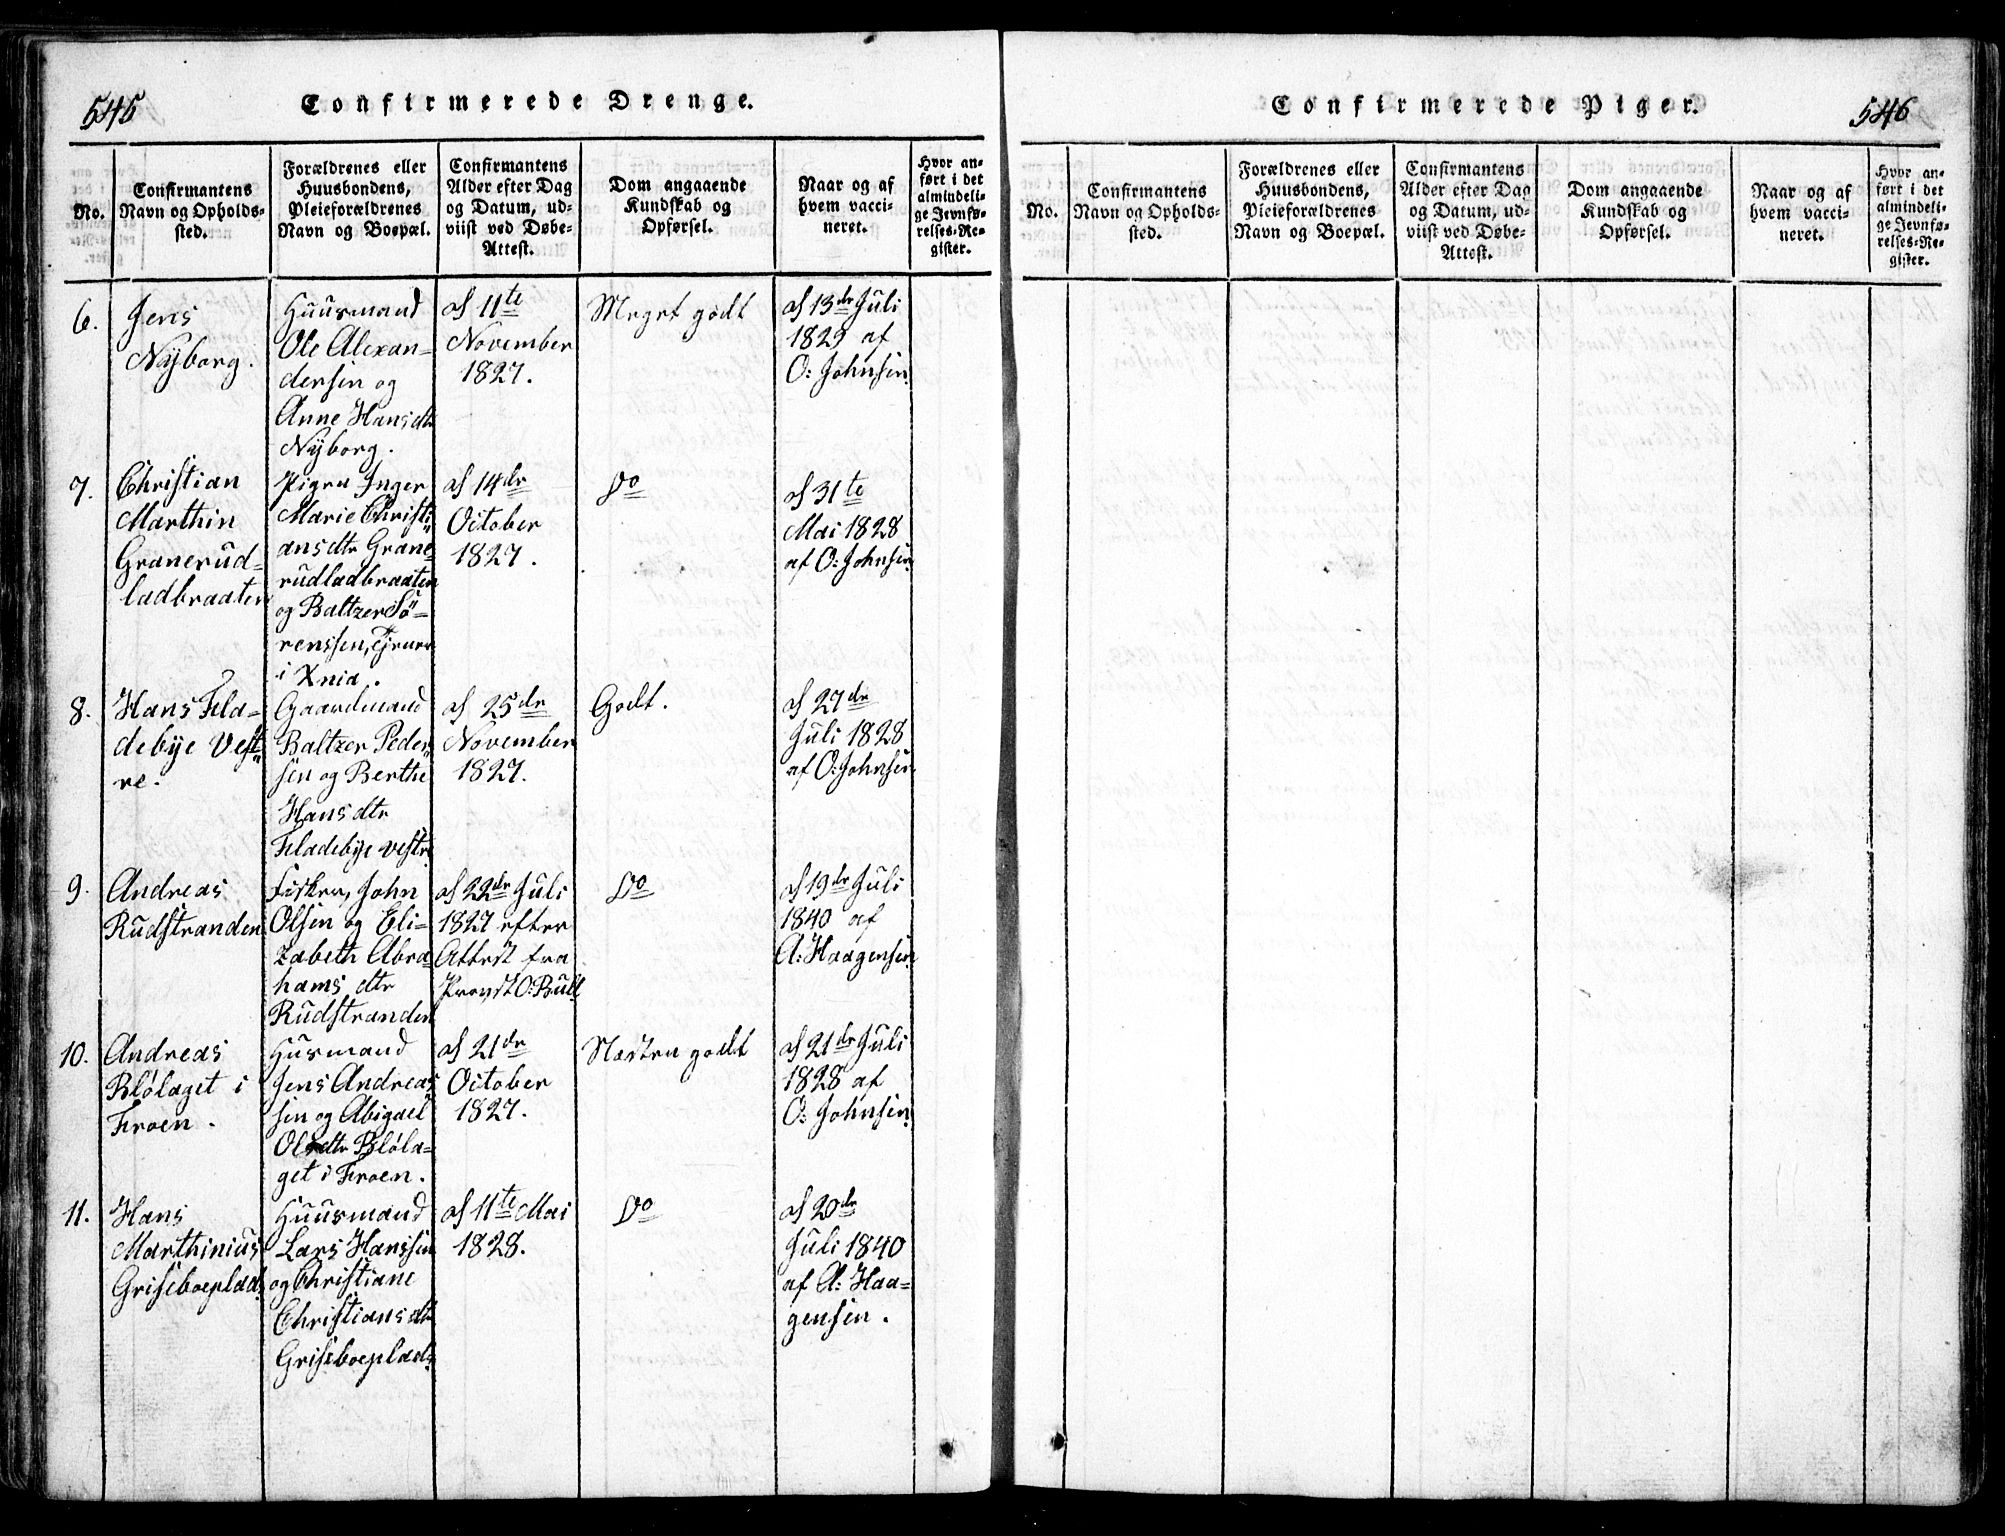 545
Confirmerede Drenge.
No.
Confirmantens
Navn og Opholds-
sted.
Forældrenes eller
Huusbondens,
Pleieforældrenes
Navn og Boepæl.
Confirmantens
Alder efter Dag
og Datum, ud-
viist ved Døbe-
Attest.
Dom angaaende
Kundskab og
Opførsel.
Naar og af
hvem vacci-
neret.
Hvor an-
ført i det
almindeli-
ge Jevnfø-
relses-Re-
gister.
6.
Jens
Nÿborg.
Huusmand
Ole Alexan=
dersen og
Anne Hansdtr
Nÿborg.
af 11te
November
1827.
Meget godt
af 13de Juli
1829 af
O: Johnsen.
7.
Christian
Marthin
Granerud-
ladbraaten
Pigen Inger
Marie Christi
ansdtr Grane=
rudladbraaten
og Baltzer Sö=
renssen,
i Xnia.
af 14de
October
1827.
Do
af 31te
Mai 1828
af O: Johnsen
8.
Hans Fla=
debÿe Vest
re.
Gaardmand
Baltzer Peder
sen og Berthe
Hansdtr
Fladebÿe vestre
af 25de
November
1827.
Godt.
af 27de
Juli 1828
af O: Johnsen
9.
Andreas
Rudstranden
Fisker, John
Olsen og Eli=
zabeth Abra=
hamsdtr
Rudstranden
af 22de Juli
1827 efter
Attest fra
Provst O: Bull
Do
af 19de Juli
1840 af
A: Haagensen.
10.
Andreas
Blölaget i
Froen.
Husmand
Jens Andreas
sen og Abigael
Olsdtr Blöla=
get i Froen.
af 21de
October
1827.
Næsten godt
af 21de Juli
1828 af
O: Johnsen
11.
Hans
Marthinius
Griseboeplads
Huusmand
Lars Hanssen
og Christiane
Christiansdtr
Griseboeplads
af 11te Mai
1828.
Do
af 20de
Juli 1840
af A: Haa=
gensen.
Confirmerede Piger.
546
No.
Confirmantens
Navn og Opholds-
sted.
Forældrenes eller
Huusbondens,
Pleieforældrenes
Navn og Boepæl.
Confirmantens
Alder efter Dag
og Datum, ud-
viist ved Døbe-
Attest.
Dom angaaende
Kundskab og
Opførsel.
Naar og af
hvem vacci-
neret.
Hvor an-
ført i det
almindeli-
ge Jevnfø-
relses-Re-
gister.